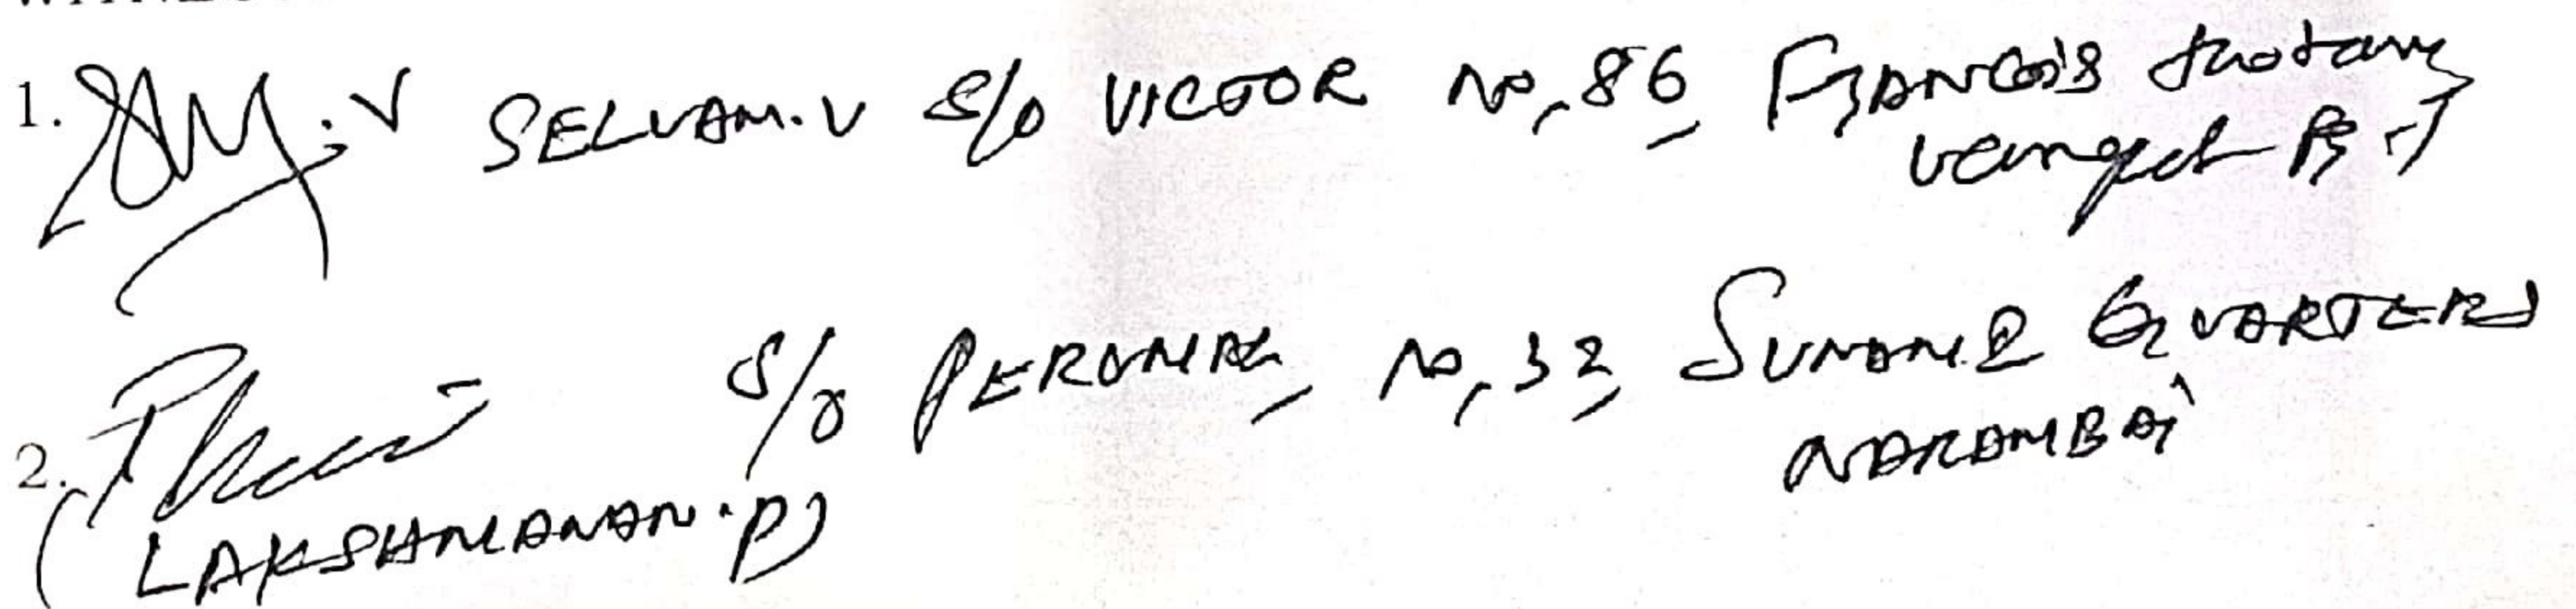 1. SELVAM.V S/o VICTOR No, 86, FRANCOIS thotam,
B.T
2. S/o PERUMAL, No, 32, SUNAMI QUARTERS
NARAMBAI
(LAKSHMANAN.P)